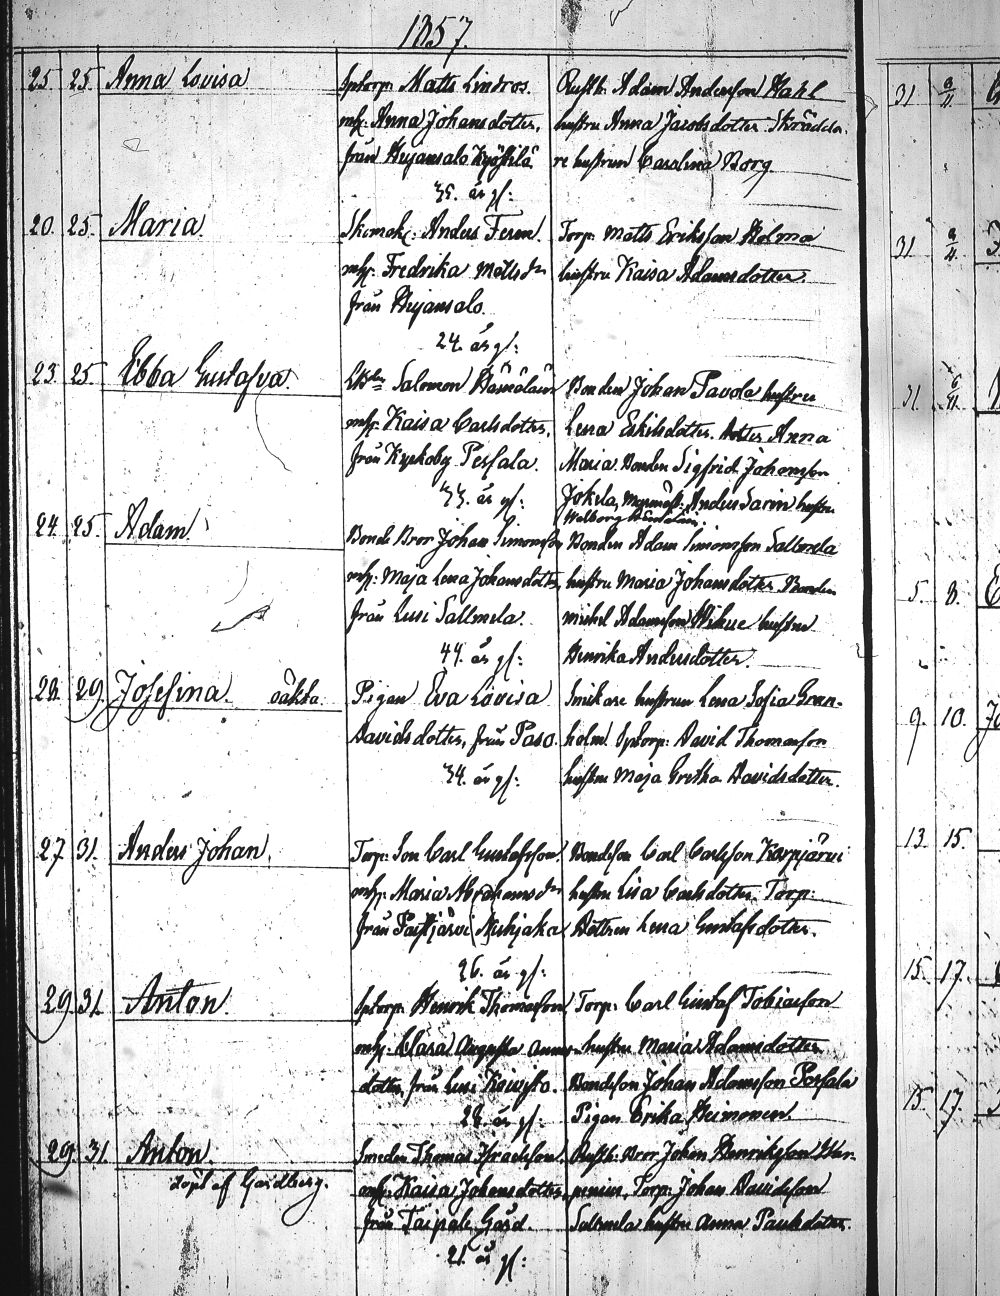 1857.
25 25 Anna Lovisa
Sptorp. Matts Lindros.
mk: Anna Johansdotter,
från Heijansalo Kyöstilä
35. år gl:
Rusth: Adam Andersson Hahl
hustru Anna Jacobsdotter Skrädda-
re hustrun Carolina Borg
20. 25. Maria.
Skomak: Anders Ferm.
mk: Fredrika Mattsdr
från Heijansalo.
24. år gl:
Torp: Matts Eriksson Holma
hustru Kaisa Adamsdotter.
23. 25. Ebba Gustafva.
Salomon Hämäläin
mk: Kaisa Carlsdotter,
från Kyrkoby Pessala.
33. år gl:
Bonden Johan Pavola hustru
Lena Eskilsdotter. dotter Anna
Maria Bonden Sigfrid Johansson
Jokela, Anders Sarin hustru
Walborg
24. 25. Adam.
Bonde Bror Johan Simonsson
mk: Maja Lena Johansdotter,
från Lusi Sallmela.
44. år gl:
Bonden Adam Simonsson Sallmela
hustru Maria Johansdotter Bonden
Michel Adamsson hustru
Henrika Andersdotter.
28. 29. Josefina. oäkta.
Pigan Eva Lovisa
Davidsdotter, från Paso.
34. år gl:
Snikare hustrun Lena Sofia Gran-
holm Sptorp: David Thomasson
hustru Maja Gretha Davidsdotter.
27. 31. Anders Johan.
Torp: Son Carl Gustafsson
mk: Maria Abrahamsdr
från Paistjärvi
26. år gl:
Bondeson Carl Carlsson Karpjärvi
hustru Lisa Carlsdotter Torp:
Dottren Lena Gustafsdotter.
29. 31. Anton.
Sptorp: Henrik Thomasson
mk: Clara Augusta Anners-
dotter från Lusi
28. år gl:
Torp: Carl Gustaf Tobiasson
hustru Maria Adamsdotter
Bondeson Johan Adamsson Pessala
Pigan Erika Heimonen.
29. 31. Anton.
döpt af Gaidberg.
Smeden Thomas Israelsson
mk: Kaisa Johansdotter,
från Taipale Gård
21. år gl:
Rusth: Bror Johan Henriksson Hur-
Torp: Johan Davidsson
Sallmela hustru Anna Paulsdotter.
31
31
31
5. 8.
9. 10.
13. 15.
15. 17.
15. 17.